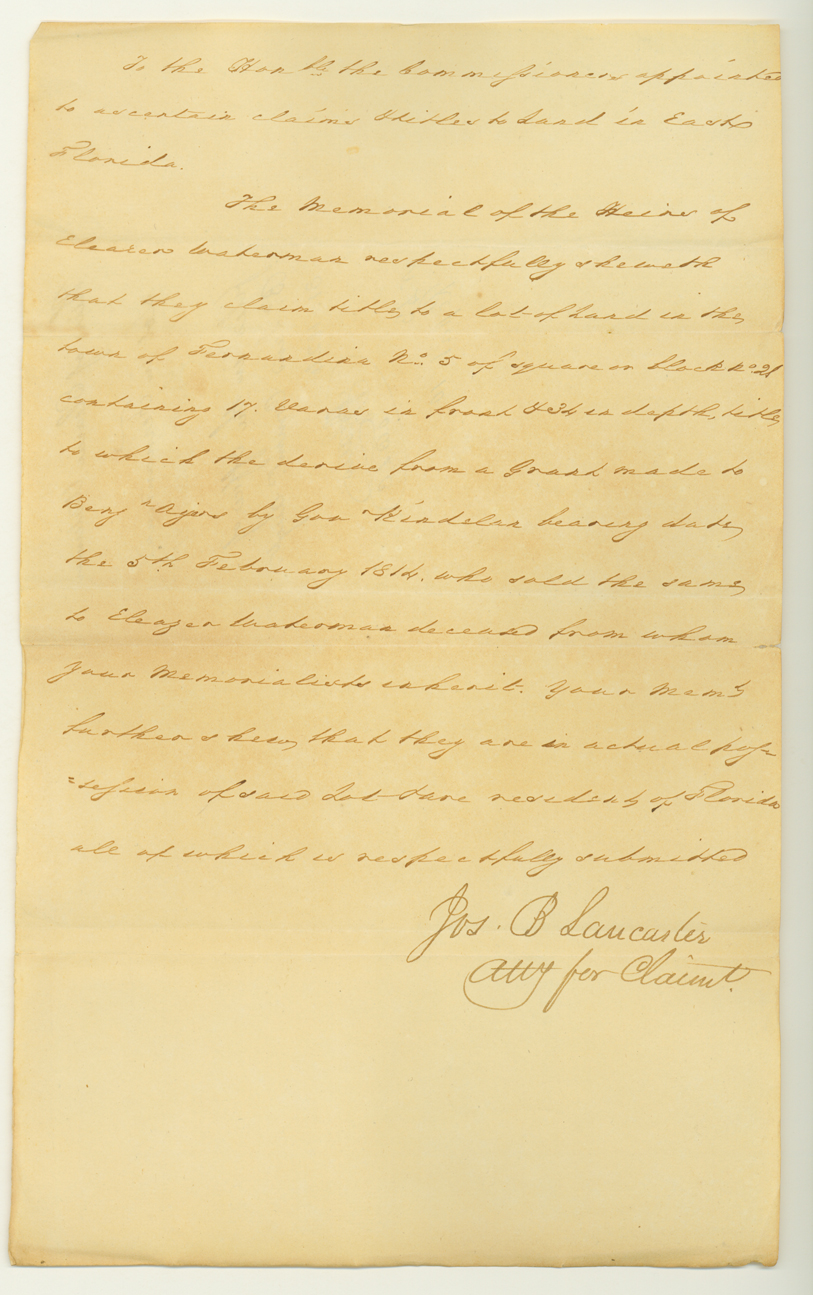 To the Honble the Commissioners appointed
to ascertain claims & titles to Land in East
Florida.
The Memorial of the Heirs of
Eleazer Waterman respectfully sheweth
that they claim title to a lot of Land in the
town of Fernandina No. 5 of square or block no 21
containing 17. Varas in front & 34 in depth, title
to which the derive from a Grant made to
Benjn by Gov Kindelan bearing date
the 5th February 1814. who sold the same
to Eleazer Waterman deceased from whom
your Memorialists inherit. Your Memts
further shew, that they are in actual pos
=session of said Lot & are residents of Florida
all of which is respectfully submitted
Jos. B Lancaster
Atty for Claimt.